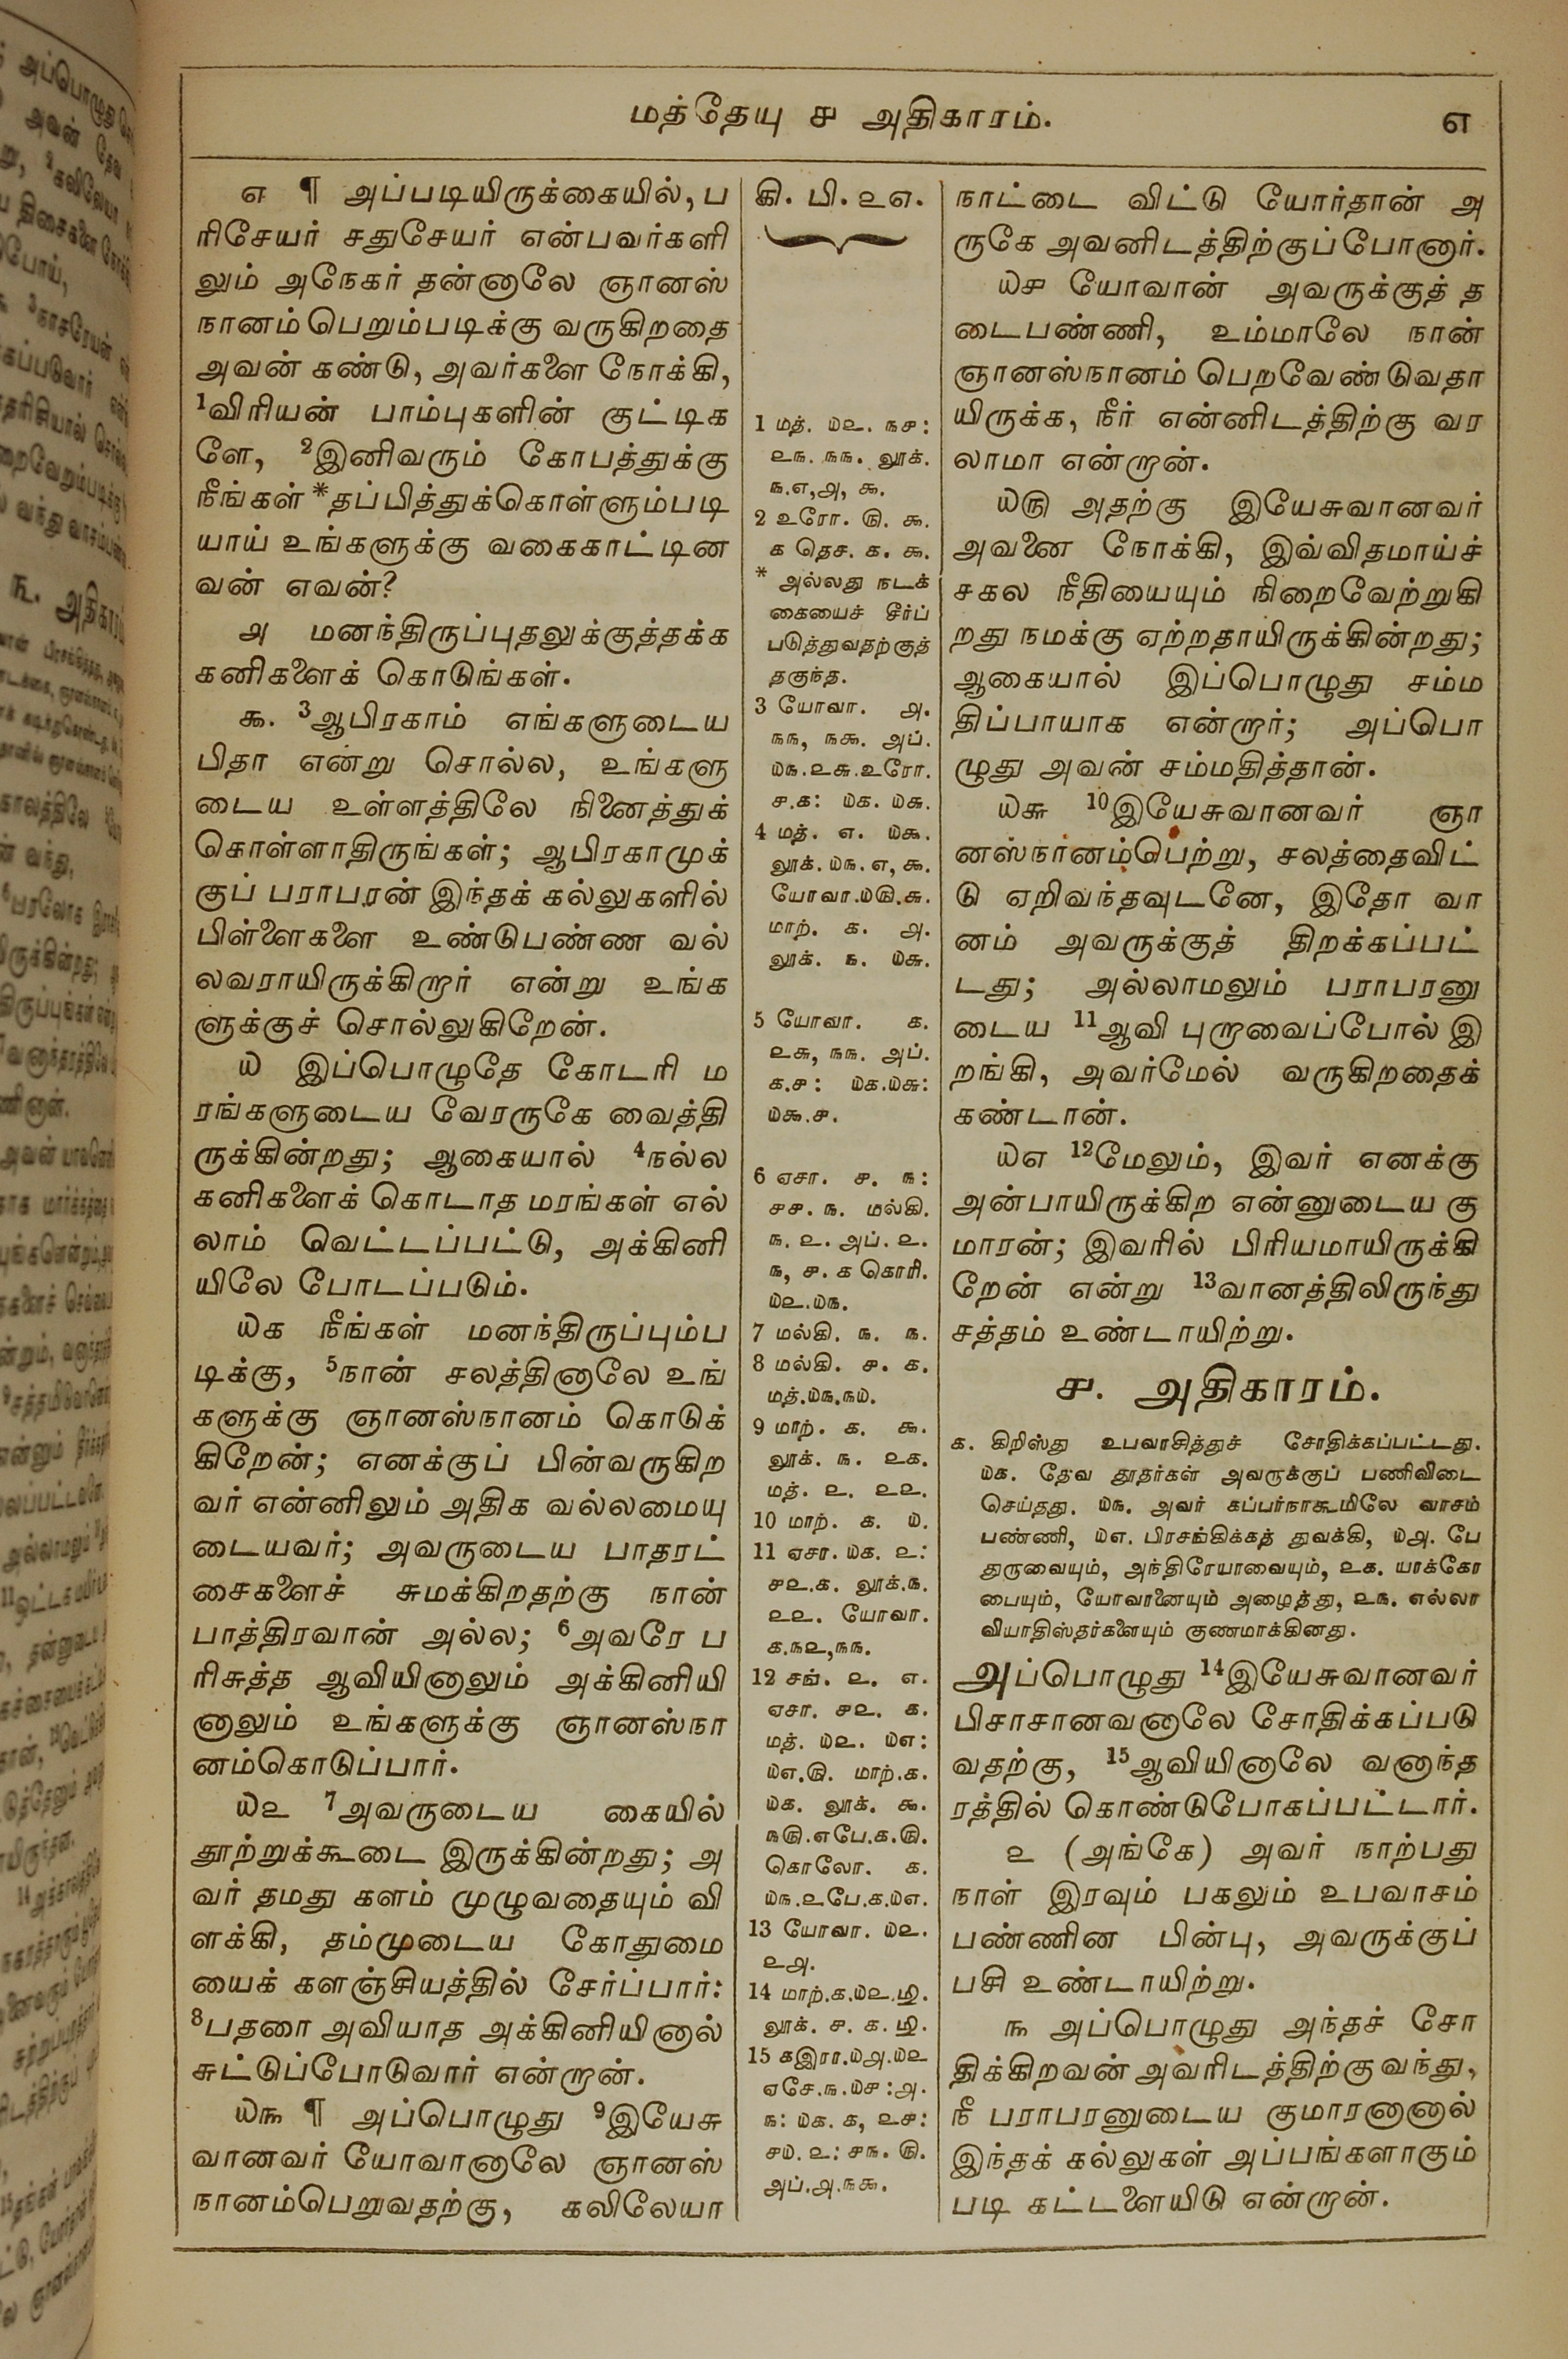 மத்தேயு ௪ அதிகாரம்.
௭
௭ ¶ அப்படியிருக்கையில், ப
ரிசேயர் சதுசேயர் என்பவர்களி
லும் அநேகர் தன்னாலே ஞானஸ்
நானம்பெறும்படிக்கு வருகிறதை
அவன் கண்டு, அவர்களை நோக்கி,
1விரியன் பாம்புகளின் குட்டிக
ளே, 2இனிவரும் கோபத்துக்கு
நீங்கள் *தப்பித்துக்கொள்ளும்படி
யாய் உங்களுக்கு வகைகாட்டின
வன் எவன்?
௮ மனந்திருப்புதலுக்குத்தக்க
கனிகளைக் கொடுங்கள்.
௯. 3ஆபிரகாம் எங்களுடைய
பிதா என்று சொல்ல, உங்களு
டைய உள்ளத்திலே நினைத்துக்
கொள்ளாதிருங்கள்; ஆபிரகாமுக்
குப் பராபரன் இந்தக் கல்லுகளில்
பிள்ளைகளை உண்டுபண்ண வல்
லவராயிருக்கிறார் என்று உங்க
ளுக்குச் சொல்லுகிறேன்.
௰ இப்பொழுதே கோடரி ம
ரங்களுடைய வேரருகே வைத்தி
ருக்கின்றது; ஆகையால் 4நல்ல
கனிகளைக் கொடாத மரங்கள் எல்
லாம் வெட்டப்பட்டு, அக்கினி
யிலே போடப்படும்.
௰௧ நீங்கள் மனந்திருப்பும்ப
டிக்கு, 5நான் சலத்தினாலே உங்
களுக்கு ஞானஸ்நானம் கொடுக்
கிறேன்; எனக்குப் பின்வருகிற
வர் என்னிலும் அதிக வல்லமையு
டையவர்; அவருடைய பாதரட்
சைகளைச் சுமக்கிறதற்கு நான்
பாத்திரவான் அல்ல; 6அவரே ப
ரிசுத்த ஆவியினாலும் அக்கினியி
னாலும் உங்களுக்கு ஞானஸ்நா
னம்கொடுப்பார்.
௰௨ 7அவருடைய கையில்
தூற்றுக்கூடை இருக்கின்றது; அ
வர் தமது களம் முழுவதையும் வி
ளக்கி, தம்முடைய கோதுமை
யைக் களஞ்சியத்தில் சேர்ப்பார்:
8பதரை அவியாத அக்கினியினால்
சுட்டுப்போடுவார் என்றான்.
௰௩ ¶ அப்பொழுது 9இயேசு
வானவர் யோவானாலே ஞானஸ்
நானம்பெறுவதற்கு, கலிலேயா
கி. பி. ௨௭.
1 மத். ௰௨. ௩௪:
௨௩. ௩௩. லூக்.
௩.௭,௮, ௯.
2 உரோ. ௫. ௯.
௧ தெச. ௧. ௯.
* அல்லது நடக்
கையைச் சீர்ப்
படுத்துவதற்குத்
தகுந்த.
3 யோவா. ௮.
௩௩, ௩௯. அப்.
௰௩.௨௬.உரோ.
௪.௧: ௰௧. ௰௬.
4 மத். ௭. ௰௯.
லூக்.௰௩.௭, ௯.
யோவா.௰௫.௬.
மாற். ௧. ௮.
லூக். ௩. ௰௬.
5 யோவா. ௧.
௨௬, ௩௩. அப்.
௧.௪: ௰௧.௰௬:
௰௯.௪.
6 ஏசா. ௪. ௩:
௪௪. ௩. மல்கி.
௩. ௨. அப். ௨.
௩, ௪. ௧ கொரி.
௰௨.௰௩.
7 மல்கி. ௩. ௩.
8 மல்கி. ௪. ௧.
மத்.௰௩.௩௰.
9 மாற். ௧. ௯.
லூக். ௩. ௨௧.
மத். ௨. ௨௨.
10 மாற். ௧. ௰.
11 ஏசா. ௰௧. ௨:
௪௨.௧. லூக்.௩.
௨௨. யோவா.
௧.௩௨,௩௩.
12 சங். ௨. ௭.
ஏசா. ௪௨. ௧.
மத். ௰௨. ௰௭:
௰௭.௫. மாற்.௧.
௰௧. லூக். ௯.
௩௫.எபே.௧.௫.
கொலோ. ௧.
௰௩.௨பே.௧.௰௭.
13 யோவா. ௰௨.
௨௮.
14 மாற்.௧.௰௨.மி.
லூக். ௪. ௧. மி.
15 ௧இரா.௰௮.௰௨
ஏசே.௩.௰௪:௮.
௩: ௰௧. ௧, ௨௪:
௪௰. ௨: ௪௩. ௫.
அப்.௮.௩௯.
நாட்டை விட்டு யோர்தான் அ
ருகே அவனிடத்திற்குப்போனார்.
௰௪ யோவான் அவருக்குத் த
டைபண்ணி, உம்மாலே நான்
ஞானஸ்நானம் பெறவேண்டுவதா
யிருக்க, நீர் என்னிடத்திற்கு வர
லாமா என்றான்.
௰௫ அதற்கு இயேசுவானவர்
அவனை நோக்கி, இவ்விதமாய்ச்
சகல நீதியையும் நிறைவேற்றுகி
றது நமக்கு ஏற்றதாயிருக்கின்றது;
ஆகையால் இப்பொழுது சம்ம
திப்பாயாக என்றார்; அப்பொ
ழுது அவன் சம்மதித்தான்.
௰௬ 10இயேசுவானவர் ஞா
னஸ்நானம்பெற்று, சலத்தைவிட்
டு ஏறிவந்தவுடனே, இதோ வா
னம் அவருக்குத் திறக்கப்பட்
டது; அல்லாமலும் பராபரனு
டைய 11ஆவி புறாவைப்போல் இ
றங்கி, அவர்மேல் வருகிறதைக்
கண்டான்.
௰௭ 12மேலும், இவர் எனக்கு
அன்பாயிருக்கிற என்னுடைய கு
மாரன்; இவரில் பிரியமாயிருக்கி
றேன் என்று 13வானத்திலிருந்து
சத்தம் உண்டாயிற்று.
௪. அதிகாரம்.
௧. கிறிஸ்து உபவாசித்துச் சோதிக்கப்பட்டது.
௰௧. தேவ தூதர்கள் அவருக்குப் பணிவிடை
செய்தது. ௰௩. அவர் கப்பர்நாகூமிலே வாசம்
பண்ணி, ௰௭. பிரசங்கிக்கத் துவக்கி, ௰௮. பே
துருவையும், அந்திரேயாவையும், ௨௧. யாக்கோ
பையும், யோவானையும் அழைத்து, ௨௩. எல்லா
வியாதிஸ்தர்களையும் குணமாக்கினது.
அப்பொழுது 14இயேசுவானவர்
பிசாசானவனாலே சோதிக்கப்படு
வதற்கு, 15ஆவியினாலே வனாந்த
ரத்தில் கொண்டுபோகப்பட்டார்.
௨ (அங்கே) அவர் நாற்பது
நாள் இரவும் பகலும் உபவாசம்
பண்ணின பின்பு, அவருக்குப்
பசி உண்டாயிற்று.
௩ அப்பொழுது அந்தச் சோ
திக்கிறவன் அவரிடத்திற்குவந்து,
நீ பராபரனுடைய குமாரனானால்
இந்தக் கல்லுகள் அப்பங்களாகும்
படி கட்டளையிடு என்றான்.